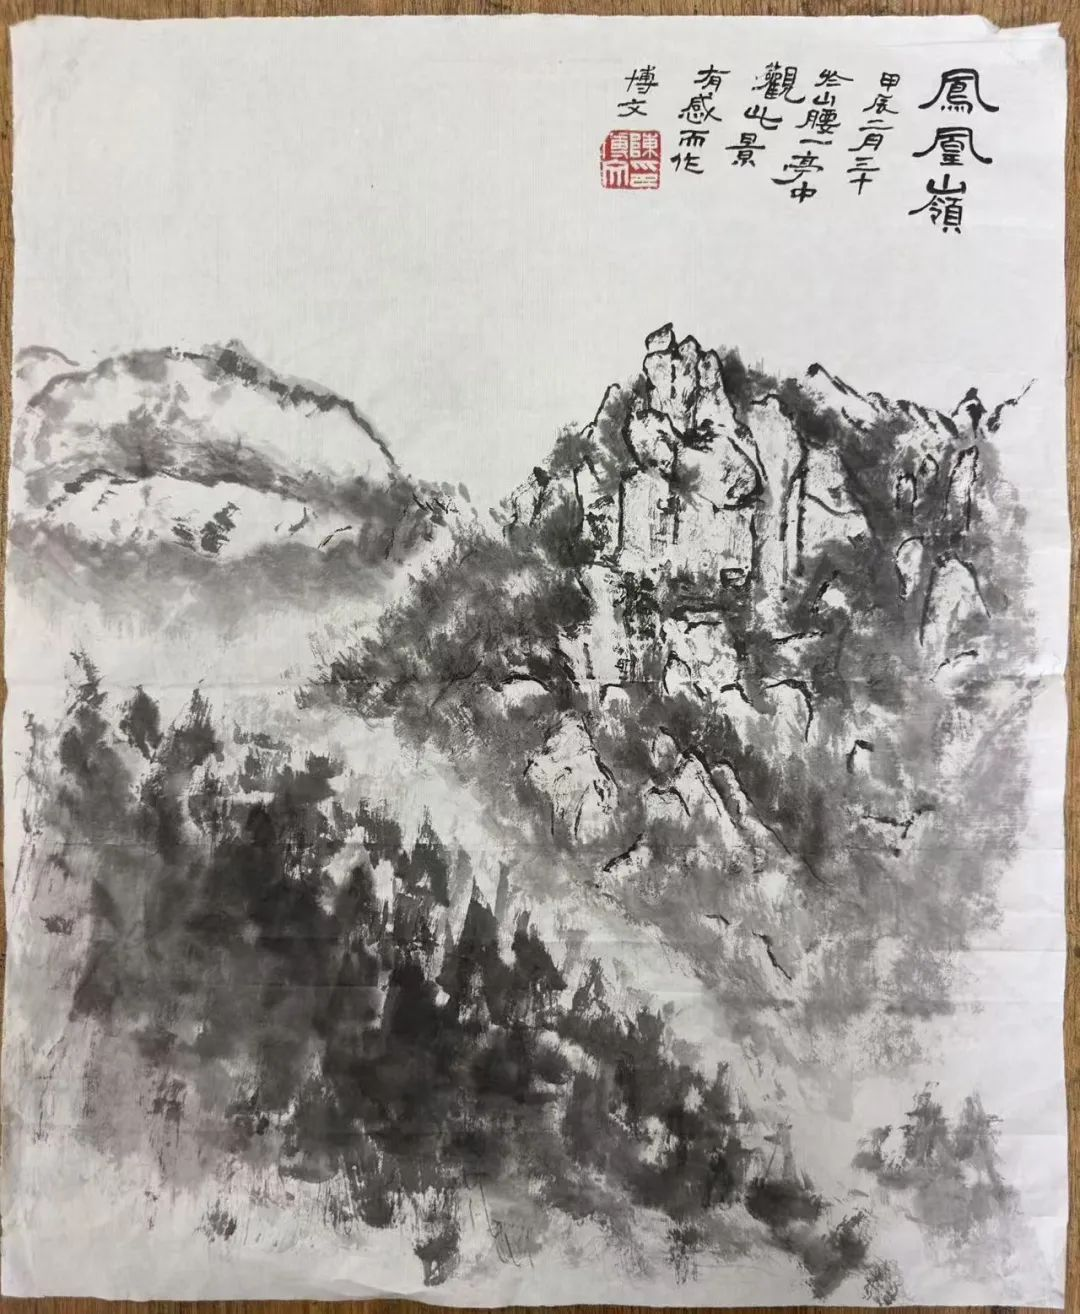 鳳凰山嶺
甲辰二月三十
於山腰一亭中
觀此景
有感而作
博文
陳博文印